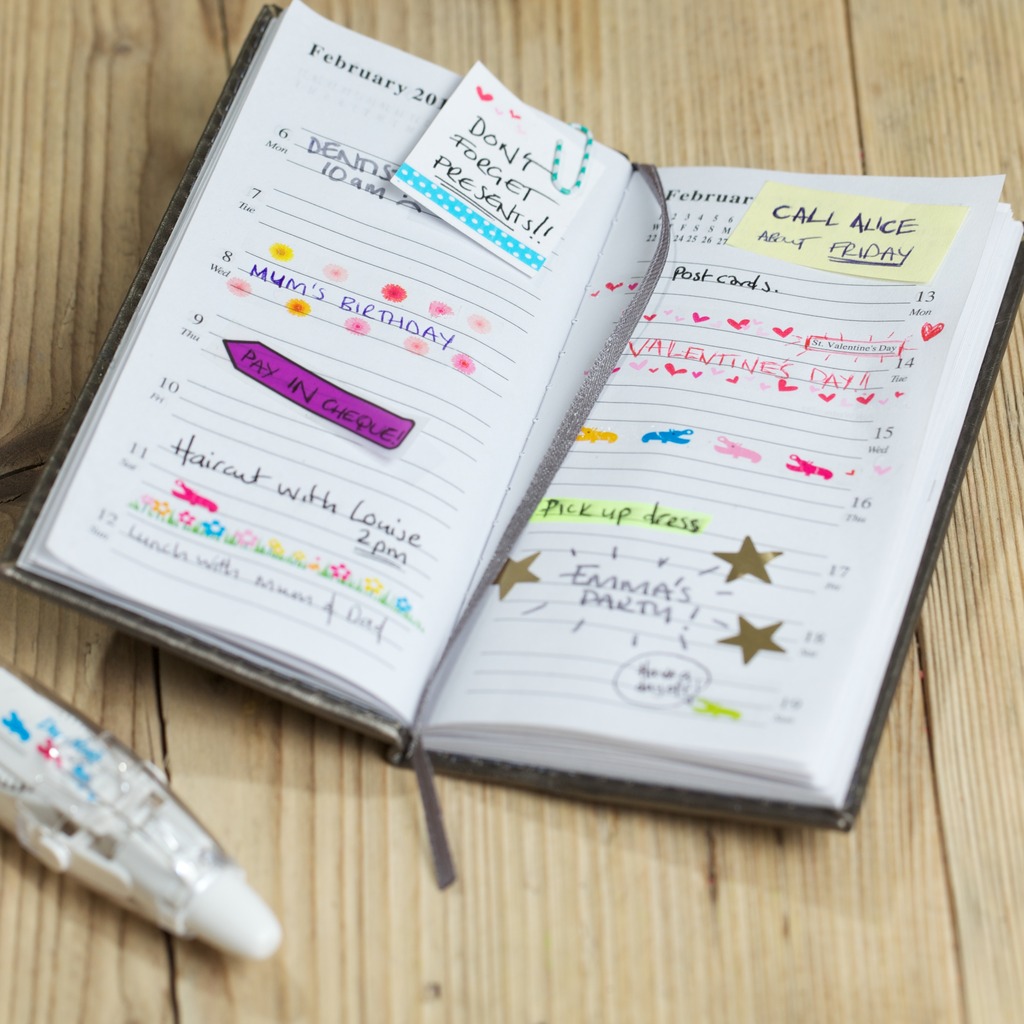 February 201
6
Mon
DENTIS
10am
DON'T
FORGET
PRESENTS!!
7
Tue
8
Wed
MUM'S BIRTHDAY
9
Thu
PAY IN CHEQUE!
10
Fri
11
Sat
Haircut with Louise
2pm
12
Sun
Lunch with Mum & Dad
Februar
2 3 4 5 6
W F S S M
22 24 25 26 27
CALL ALICE
ABOUT FRIDAY
Postcards.
13
Mon
St. Valentine's Day
VALENTINES DAY!!
14
Tue
15
Wed
16
Thu
Pick up dress
17
Fri
EMMA'S
PARTY!
18
Sat
19
Sun